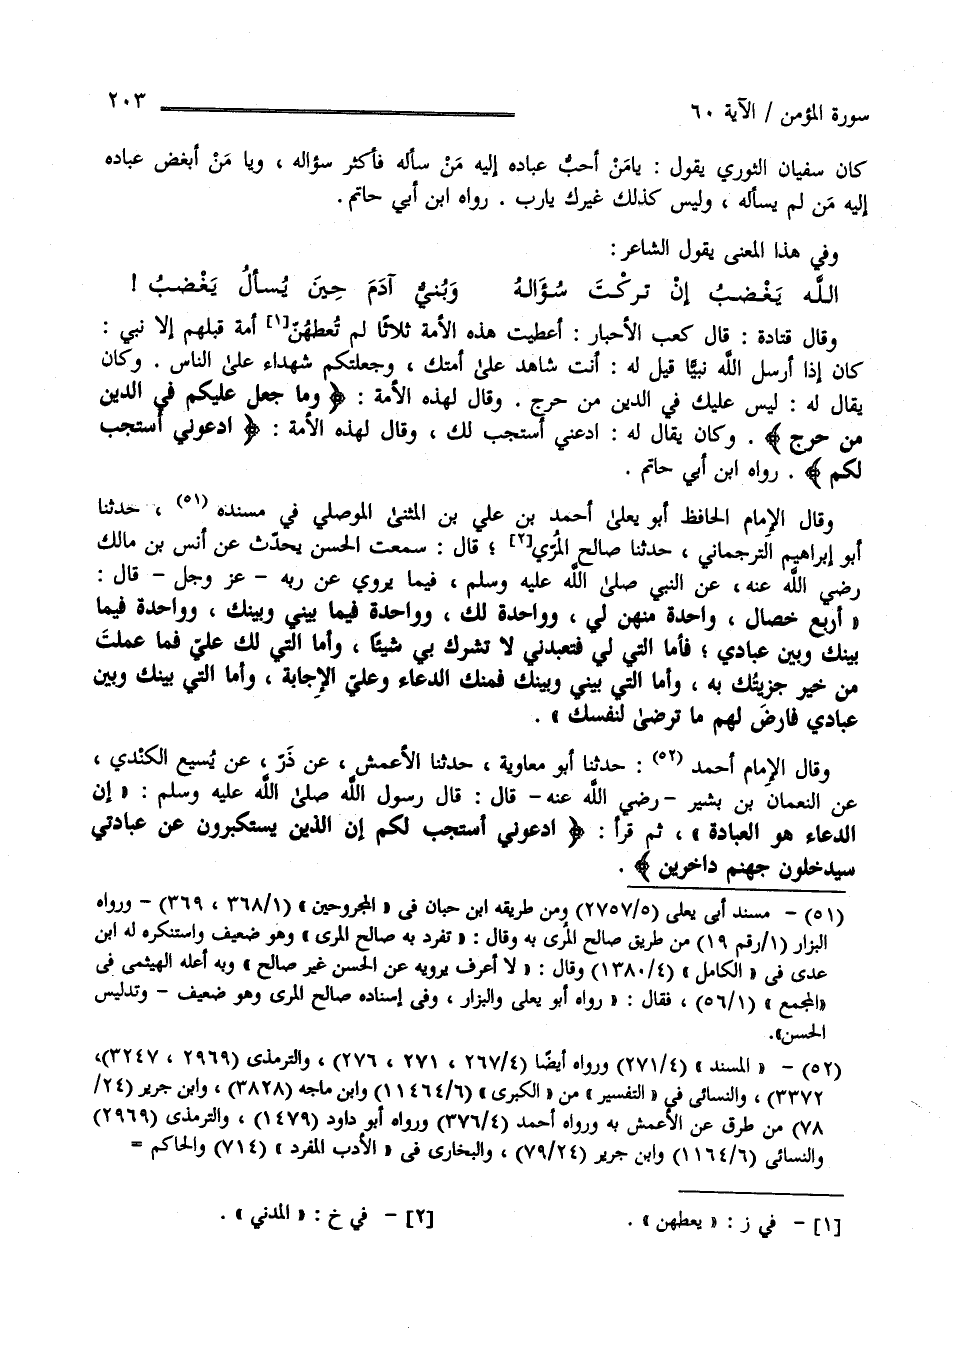 سورة المؤمن / الآية ٦٠ ٢٠٣
كان سفيان الثوري يقول : يامَنْ أحبُّ عباده إليه مَنْ سأله فأكثر سؤاله ، ويا مَنْ أبغض عباده
إليه مَن لم يسأله ، وليس كذلك غيرك يارب . رواه ابن أبي حاتم .
وفي هذا المعنى يقول الشاعر :
اللَّه يَغْضبُ إنْ تركْتَ سُؤَالهُ وَبُنيُّ آدَمَ حِينَ يُسألُ يَغْضبُ !
وقال قتادة : قال كعب الأحبار : أعطيت هذه الأمة ثلاثًا لم تُعطهُنّ[١] أمة قبلهم إلا نبي :
كان إذا أرسل اللَّه نبيًّا قيل له : أنت شاهد علىٰ أمتك ، وجعلتكم شهداء علىٰ الناس . وكان
يقال له : ليس عليك في الدين من حرج . وقال لهذه الأمة : ﴿ وما جعل عليكم في الدين
من حرج ﴾ . وكان يقال له : ادعني أستجب لك ، وقال لهذه الأمة : ﴿ ادعوني أستجب
لكم ﴾ . رواه ابن أبي حاتم .
وقال الإمام الحافظ أبو يعلىٰ أحمد بن علي بن المثنىٰ الموصلي في مسنده (٥١) ، حدثنا
أبو إبراهيم الترجماني ، حدثنا صالح المُرّي[٢] ؛ قال : سمعت الحسن يحدّث عن أنس بن مالك
رضي اللَّه عنه، عن النبي صلىٰ اللَّه عليه وسلم ، فيما يروي عن ربه - عز وجل - قال :
« أربع خصال ، واحدة منهن لي ، وواحدة لك ، وواحدة فيما بيني وبينك ، وواحدة فيما
بينك وبين عبادي ؛ فأما التي لي فتعبدني لا تشرك بي شيئًا ، وأما التي لك عليّ فما عملتَ
من خير جزيتُك به ، وأما التي بيني وبينك فمنك الدعاء وعليّ الإجابة ، وأما التي بينك وبين
عبادي فارضَ لهم ما ترضىٰ لنفسك » .
وقال الإمام أحمد (٥٢) : حدثنا أبو معاوية ، حدثنا الأعمش ، عن ذَرّ ، عن يُسيع الكنْدي ،
عن النعمان بن بشير - رضي اللَّه عنه- قال : قال رسول اللَّه صلىٰ اللَّه عليه وسلم : « إن
الدعاء هو العبادة » ، ثم قرأ : ﴿ ادعوني أستجب لكم إن الذين يستكبرون عن عبادتي
سيدخلون جهنم داخرين ﴾ .
(٥١) - مسند أبى يعلى (٢٧٥٧/٥) ومن طريقه ابن حبان فى « المجروحين » (٣٦٨/١ ، ٣٦٩) - ورواه
البزار (١/رقم ١٩) من طريق صالح المُرى به وقال : « تفرد به صالح المرى » وهو ضعيف واستنكره له ابن
عدى فى « الكامل » (١٣٨٠/٤) وقال : « لا أعرف يرويه عن الحسن غير صالح » وبه أعله الهيثمى فى
«المجمع » (٥٦/١) ، فقال : « رواه أبو يعلى والبزار ، وفى إسناده صالح المرى وهو ضعيف - وتدليس
الحسن».
(٥٢) - « المسند » (٢٧١/٤) ورواه أيضًا (٢٦٧/٤ ، ٢٧١ ، ٢٧٦) ، والترمذى (٢٩٦٩ ، ٣٢٤٧)،
٣٣٧٢) ، والنسائى فى « التفسير » من « الكبرى » (١١٤٦٤/٦) وابن ماجه (٣٨٢٨) ، وابن جرير (٢٤/
٧٨) من طرق عن الأعمش به ورواه أحمد (٣٧٦/٤) ورواه أبو داود (١٤٧٩) ، والترمذى (٢٩٦٩)
والنسائى (١١٦٤/٦) وابن جرير (٧٩/٢٤) ، والبخارى فى « الأدب المفرد » (٧١٤) والحاكم =
[١] - في ز : « يعطهن » . [٢] - في خ : « المدني » .